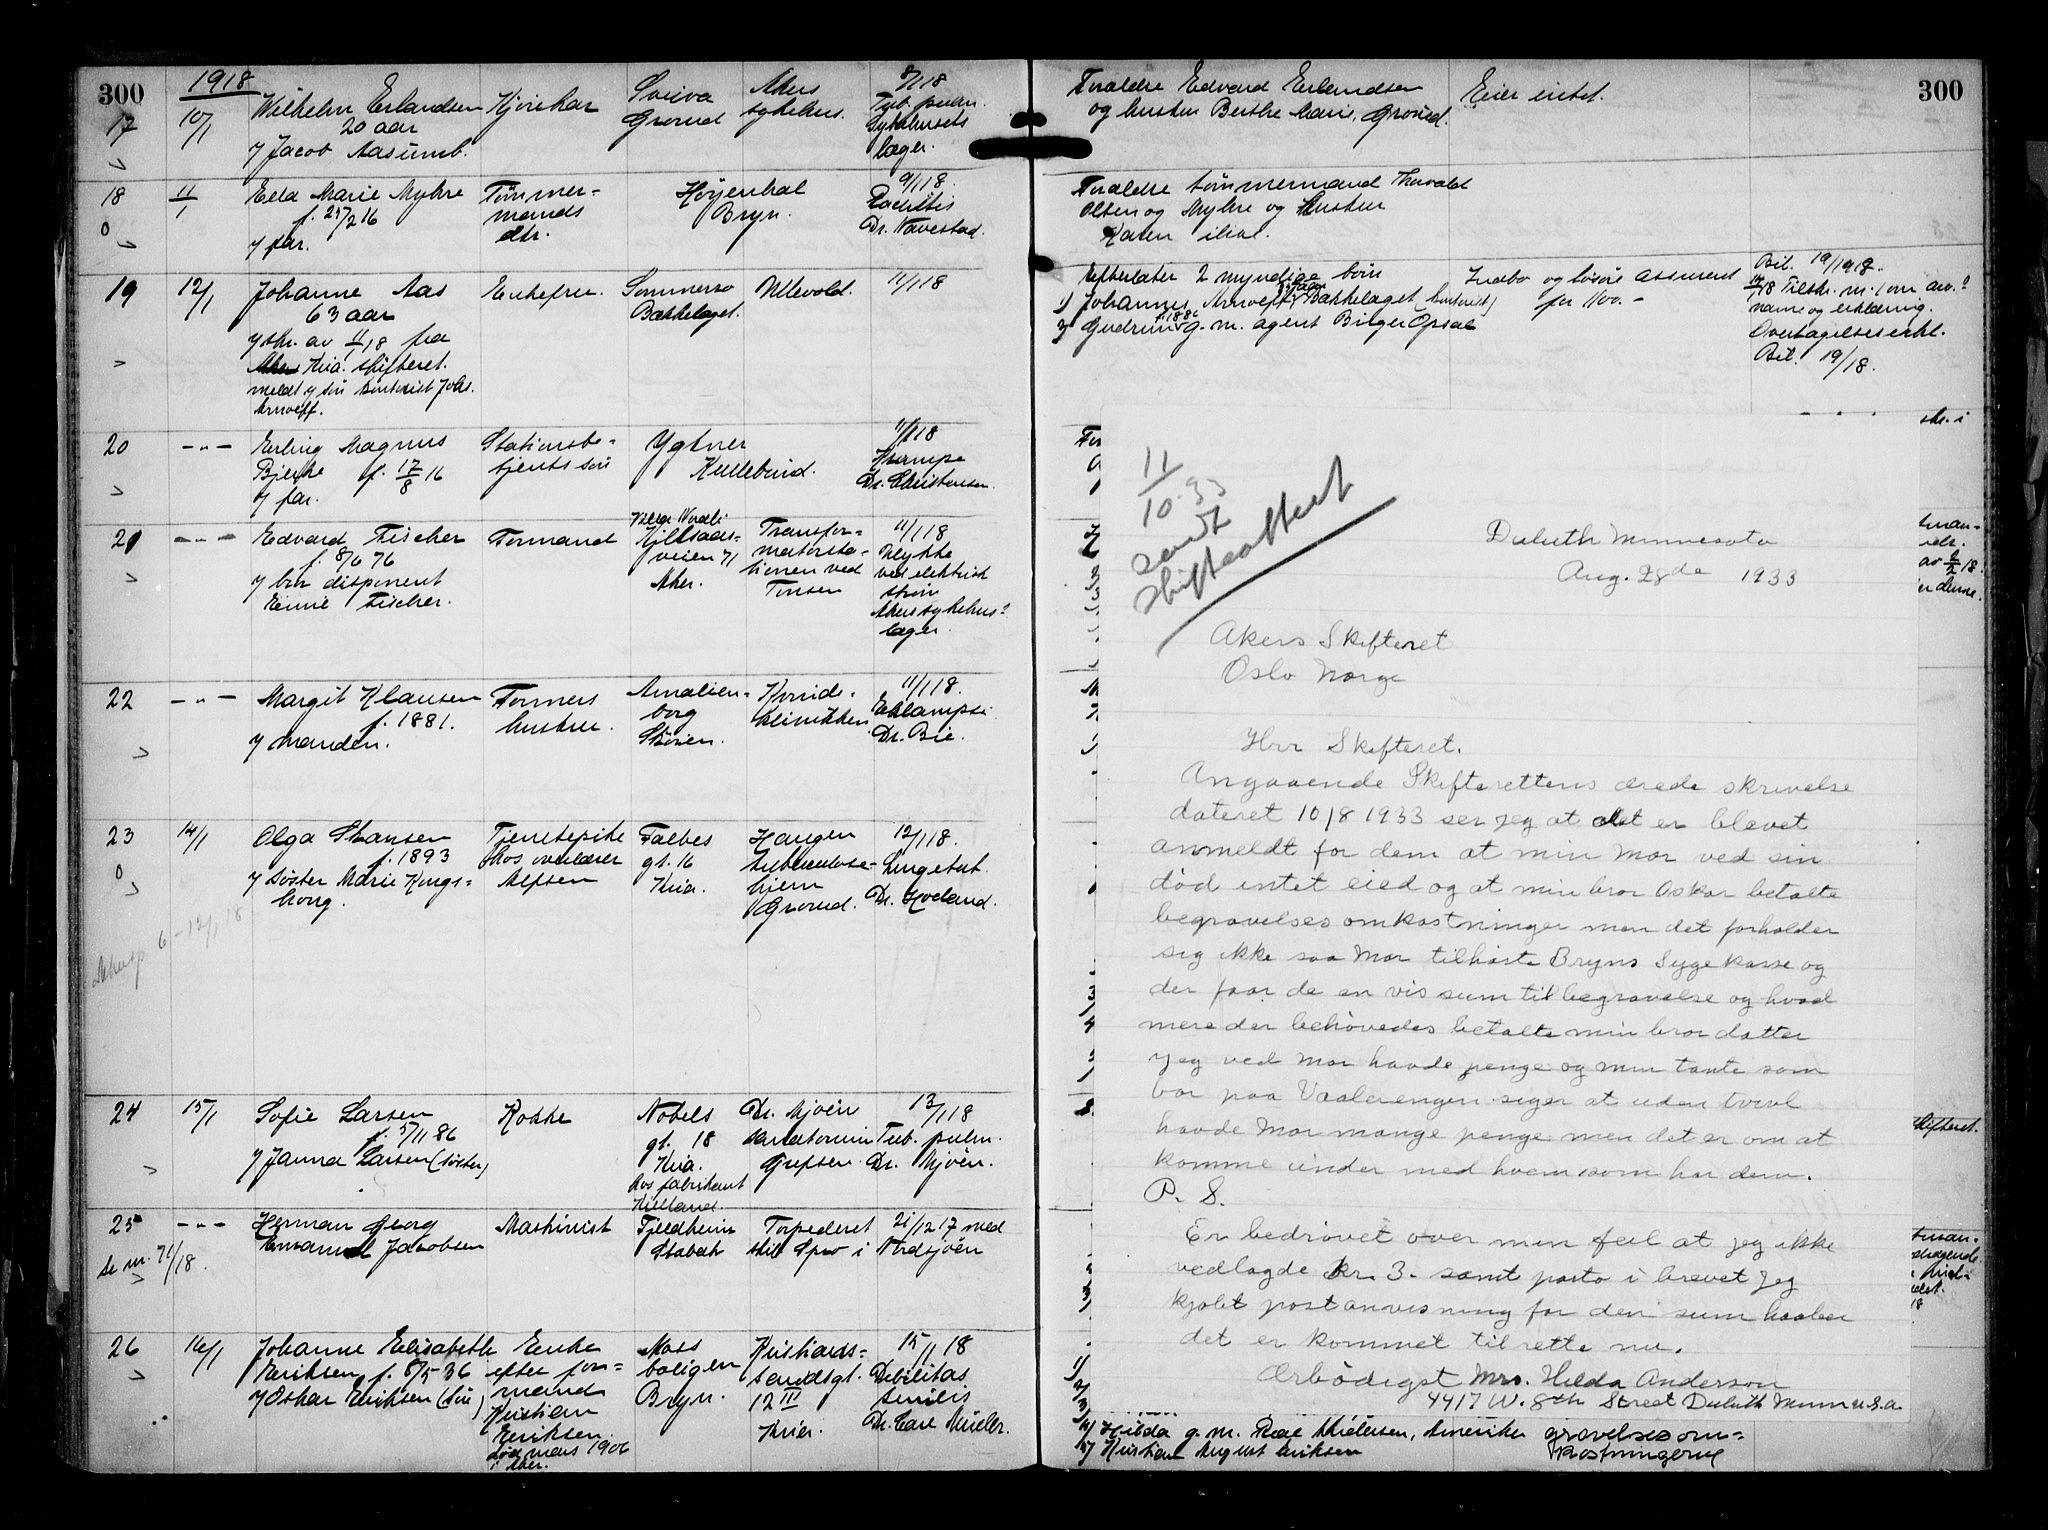 300
1918
17
10/1
Wilhelm Erlandsen
20 aar
Jacob Aasumb.
Sveiva
Grorud
Akers
sykehus.
8/1 18
Tub. pulm.
Sykehusets
læger.
18
11/1
Myhre
f. 25/2 16
far.
Tømmer-
mands
dtr.
Høyenhal
Bryn.
9/1 18.
Dr. Navestad.
19
12/1
Johanne Aas
63 aar
skr. av 11/1 18 fra
Kria. skifteret.
Enkefru.
Bækkelaget.
Ullevold.
11/1 18
20
Erling Magnus
Bjerke f. 17/8 16
far.
Stationsbe-
tjents søn
11/1 18
Dr. Christensen.
21
Edvard Fischer
f. 8/6 76
bror disponent
Fischer.
Formand
Aker.
Transfor-
matorsta-
tionen ved
Tonsen
11/1 18
Ulykke
ved elektrisk
strøm
læger.
22
Margit Klausen
f. 1881.
manden.
Formers
hustru.
Amalien-
borg
Kvinde-
klinikken
11/1 18.
Eklampsi
Dr. Bie.
23
14/1
Olga Hansen
f. 1893
søster Marie Kongs-
houg.
Tjenestepike
hos overlærer
Alfsen
Falbes
gt. 16
Kria.
Haugen
tuberkulose-
hjem
Grorud.
12/1 18.
Lungetub.
Dr. Hovland.
24
15/1
Sofie Larsen
f. 5/11 86
Janna Larsen (søster)
Kokke
Nobels
gt. 18
Kria.
hos fabrikant
Kielland
Dr. Mjøen
sanatorium
Grefsen.
13/1 18
Tub. pulm.
Dr. Mjøen.
25
se nr. 71/18.
Herman Georg
Emanuel Jacobsen
Maskinist
Fjeldheim
Stabæk
Torpederet
21/12 17 med
skib Spro i Nordsjøen
26
16/1
Johanne Elisabeth
Eriksen, f. 8/5 36
Oskar Eriksen (søn)
Enke
efter for-
mand
Kristian
Eriksen.
død mars 1906
i Aker.
Moss
boligen
Bryn.
Kristians-
sandsgt.
12 III
Kria.
15/1 18
Debilitas
senilis
Dr. Carl Müller.
300
Foraldre Edvard Erlandsen
og hustru Berthe Marie, Grorud.
Eier intet.
Foraldre tømmermand Thorvald
Olsen og Myhre og hustru
Karen
Efterlater 2 myndige børn
1) Johannes Arnoeff, Bækkelaget
2) Gudrun f. 1886 g. m. agent Birger Opsal
Indbo og løsøre assureret
for 1100.-
Bil. 19/1918.
Overtagelseserkl.
Bil. 19/18.
11/10.33
sendt
skifteattest
Duluth Minnesota
Aug. 28de 1933
Akers Skifteret
Oslo Norge
Hrr Skifteret.
Angaaende Skifterettens ærede skrivelse
dateret 10/8 1933 ser jeg at det er blevet
anmeldt for dem at min Mor ved sin
död intet eied og at min bror Oskar betalte
begravelses omkostninger men det forholder
sig ikke saa Mor tilhørte Bryns Sygekasse og
der faar de en vis sum til begravelse og hvad
mere der behövedes betalte min bror datter
jeg ved Mor havde penge og min tante som
bor paa Vaalerengen siger at uden tvivl
havde Mor mange penge men det er om at
komme under med hvem som har dem.
P. S.
Er bedrøvet over min feil at jeg ikke
vedlagde kr. 3.- samt porto i brevet Jeg
kjøbt postanvisning for den sum haaber
det er kommet tilrette nu.
Ærbødigst Mrs. Hilda Anderson
4417 W. 8th Street Duluth Minn U.S.A.
4) Hilda g. m. Amerika
5) Kristian August Eriksen
gravelsesom-
kostningerne
skifteret.